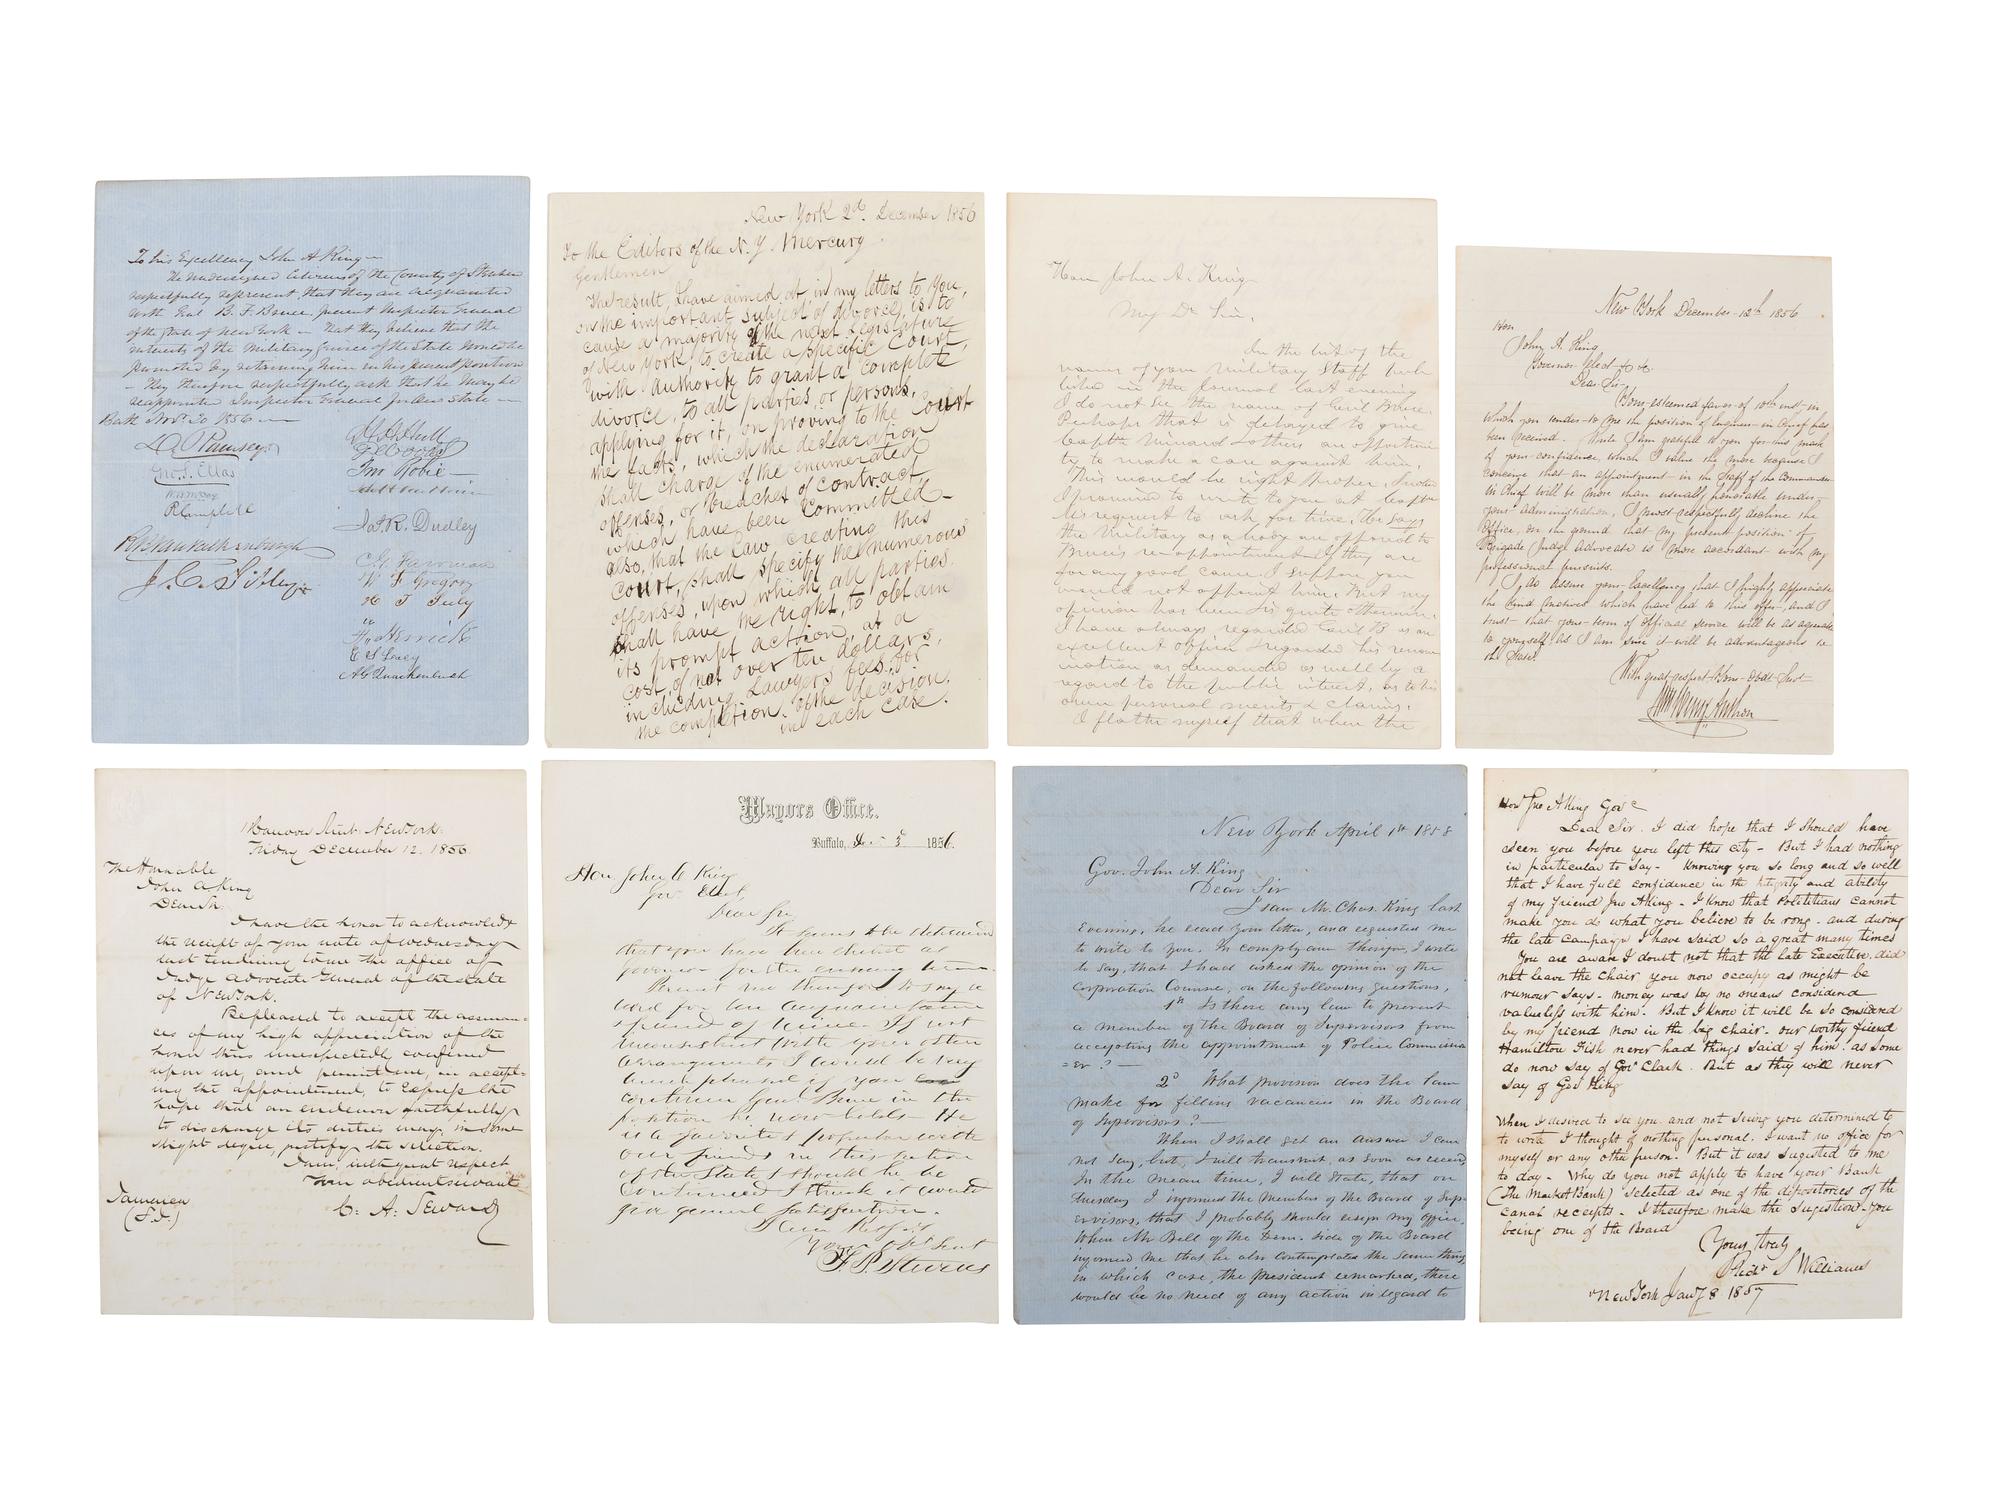 To his Excellency John A King
The undersigned citizens of the County of Steuben
respectfully represent, that they are acquainted
with Genl B. F. Bruce, present Inspector General
of the State of New York - that they believe that the
interests of the Military of the State would be
promoted by retaining him in his present position
- They therefore respectfully ask that he may be
reappointed Inspector General for our State -
Bath Nov. 20 1856
D. Ramsey
Geo. S. Ellas
Jno Robie
Jas. R. Dudley
W F Gregory
H. Herrick
New York 2d. December 1856
To the Editors of the N. Y. Mercury.
Gentlemen
The result, I have aimed at, in my letters to you,
on the important subject of divorce, is to
cause a majority of the next Legislature
of New York, to create a specific Court,
with authority to grant a complete
divorce, to all parties or persons,
applying for it, on proving to the Court
the facts, which the declaration
shall charge of the enumerated
offenses, or breaches of contract,
which have been committed -
also, that the Law creating this
court, shall specify the numerous
offenses, upon which all parties
shall have the right, to obtain
its prompt action, at a
cost, of not over ten dollars,
including Lawyers fees, for
the completion of the decision,
in each case.
Hon John A. King
My Dr Sir,
In the list of the
names of your Military Staff pub
lished in the Journal last evening
I do not see the name of Genl Bruce.
Perhaps that is delayed to give
Capt Minard & others an opportuni
ty to make a case against him.
This would be right & proper. Indeed
I promised to write to you at Capt
M's request to ask for time. He says
the Military as a body are opposed to
Bruce's re-appointment. If they are
for any good cause I suppose you
would not appoint him. But my
opinion has been is quite otherwise.
I have always regarded Genl B as an
excellent officer & regarded his renom
ination as demanded as well by a
regard to the public interest, as to his
own personal merits & claims.
I flatter myself that when the
New York December 12th 1856
Hon
John A. King
Governor Elect &c &c.
Dear Sir
Your esteemed favor of 10th inst. in
which you tender to me the position of Engineer-in-Chief has
been received. While I am grateful to you for this mark
of your confidence, which I value the more because I
conceive that an appointment in the Staff of the Commander
in Chief will be more than usually honorable under
your administration, I must respectfully decline the
Office, on the ground that my present position of
Brigade Judge Advocate is more accordant with my
professional pursuits.
I do assure your Excellency that I highly appreciate
the kind motives which have led to this offer, and I
trust that your term of Official Service will be as agreeable
to yourself, as I am sure it will be advantageous to
the State.
With great respect Your Obdt Servt
Wm Henry Anthon
Hanover New York.
Friday December 12. 1856.
The Honorable
John A King
Dear Sir.
I have the honor to acknowledge
the receipt of your note of Wednesday
last tendering to me the office of
Judge Advocate General of the State
of New York.
Be pleased to accept the assuran-
ces of my high appreciation of the
honor thus unexpectedly confered
upon me, and permit me, in accept-
ing the appointment, to express the
hope that an endeavor faithfully
to discharge its duties may, in some
slight degree, justify the selection.
I am, with great respect
Your obedient servant
C. A. Seward
Jamaica
(L.I.)
Mayors Office.
Buffalo, Dec 3d 1856.
Hon John A King
Gov. Elect,
Dear Sir
It seems to be determined
that you have been elected as
Governor for the ensuing term.
Permit me therefore to say a
word for an acquaintance
& friend of mine. If not
inconsistent with your other
arrangements I would be very
much pleased if you
continue Genl Bruce in the
position he now holds. He
is a favorite & popular with
our friends in this section
of the State & should he be
continued I think it would
give general satisfaction.
I am Respty
Your Obt Servt
F. P. Stevens
New York April 1st 1858
Gov. John A. King
Dear Sir
I saw Mr. Chas. King last
Evening, he read your letter, and requested me
to write to you. In compliance therefore, I write
to say, that I had asked the opinion of the
Corporation Counsel, on the following questions,
1st Is there any law to prevent
a member of the Board of Supervisors from
accepting the appointment of Police Commission
=er? -
2d What provision does the law
make for filling vacancies in the Board
of Supervisors? -
When I shall get an answer I can
not say, but, I will transmit as soon as received,
In the mean time, I will state, that on
Tuesday I informed the Members of the Board of Sup
ervisors, that I probably should resign my office,
When Mr Bell of the Dem. side of the Board
informed me that he also contemplated the same thing,
in which case, the President remarked, there
would be no need of any action in regard to
Hon Jno A King Govr
Dear Sir. I did hope that I should have
seen you before you left this city - But I had nothing
in particular to say - Knowing you so long and so well
that I have full confidence in the integrity and ability
of my friend Jno A King - I know that Polititians cannot
make you do what you believe to be rong - and during
the late campaign I have said so a great many times
You are aware I doubt not that the late Executive did
not leave the chair you now occupy as might be
rumour says - money was by no means considered
valueless with him. But I know it will be so considered
by my friend now in the big chair - our worthy friend
Hamilton Fish never had things said of him as some
do now say of Govr Clark. But as they will never
say of Gov King
When I desired to see you and not seeing you determined to
to write I thought of nothing personal. I want no office for
myself or any other person. But it was sugested to me
to day - Why do you not apply to have your Bank
(The Market Bank) selected as one of the depositories of the
canal receipts - I therefore make the sugestion - you
being one of the Board
Yours truly
Richd S Williams
New York Jany 8 1857